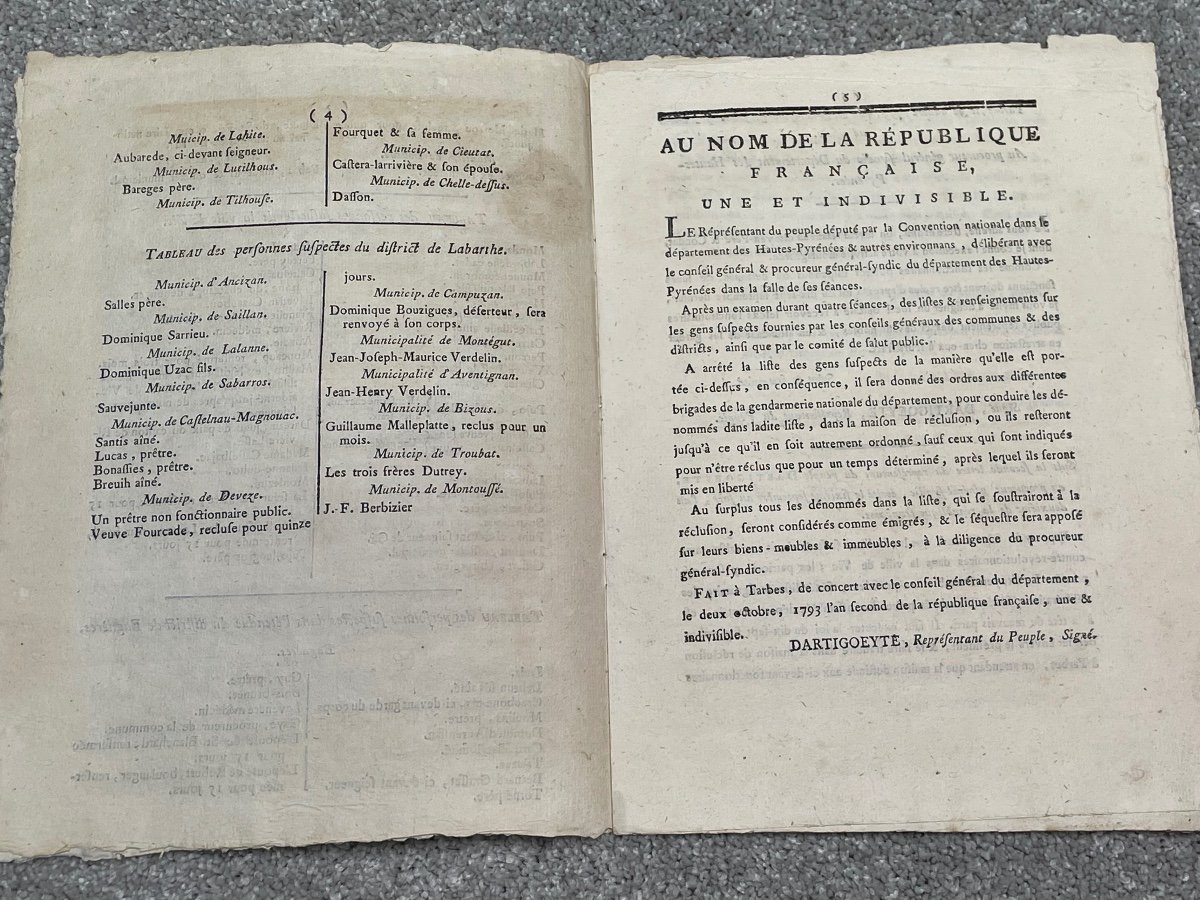 ( 4 )
Muicip. de Lahite.
Aubarede, ci-devant ſeigneur.
Municip. de Lutilhous.
Bareges père.
Municip. de Tilhouſe.
Fourquet & ſa femme.
Municip. de Cieutat.
Caſtera-larrivière & ſon épouſe.
Municip. de Chelle-deſſus.
Daſſon.
TABLEAU des perſonnes ſuſpectes du diſtrict de Labarthe.
Municip. d'Ancizan.
Salles père.
Municip. de Saillan.
Dominique Sarrieu.
Municip. de Lalanne.
Dominique Uzac fils.
Municip. de Sabarros.
Sauvejunte.
Municip. de Caſtelnau-Magnouac.
Santis aîné.
Lucas, prêtre.
Bonaſſies, prêtre.
Breuih aîné.
Municip. de Deveze.
Un prêtre non fonctionnaire public.
Veuve Fourcade, recluſe pour quinze
jours.
Municip. de Campuzan.
Dominique Bouzigues, déſerteur, ſera
renvoyé à ſon corps.
Municipalité de Montégut.
Jean-Joſeph-Maurice Verdelin.
Municipalité d'Aventignan.
Jean-Henry Verdelin.
Municip. de Bizous.
Guillaume Malleplatte, reclus pour un
mois.
Municip. de Troubat.
Les trois frères Dutrey.
Municip. de Montouſſé.
J.-F. Berbizier
( 5 )
AU NOM DE LA RÉPUBLIQUE
FRANÇAISE,
UNE ET INDIVISIBLE.
LE Réprésentant du peuple député par la Convention nationale dans le
département des Hautes-Pyrénées & autres environnans, délibérant avec
le conſeil général & procureur général-ſyndic du département des Hautes-
Pyrénées dans la ſalle de ſes ſéances.
Après un examen durant quatre ſéances, des liſtes & renſeignements ſur
les gens ſuſpects fournies par les conſeils généraux des communes & des
diſtricts, ainſi que par le comité de ſalut public.
A arrêté la liſte des gens ſuſpects de la manière qu'elle eſt por-
tée ci-deſſus, en conſéquence, il ſera donné des ordres aux différentes
brigades de la gendarmerie nationale du département, pour conduire les dé-
nommés dans ladite liſte, dans la maiſon de réclusion, ou ils reſteront
juſqu'à ce qu'il en ſoit autrement ordonné, ſauf ceux qui ſont indiqués
pour n'être réclus que pour un temps déterminé, après lequel ils ſeront
mis en liberté
Au ſurplus tous les dénommés dans la liſte, qui ſe ſouſtrairont à la
réclusion, ſeront conſidérés comme émigrés, & le ſéqueſtre ſera appoſé
ſur leurs biens-meubles & immeubles, à la diligence du procureur
général-ſyndic.
FAIT à Tarbes, de concert avec le conſeil général du département,
le deux octobre, 1793 l'an ſecond de la république françaiſe, une &
indiviſible.
DARTIGOEYTE, Repréſentant du Peuple, Signé.